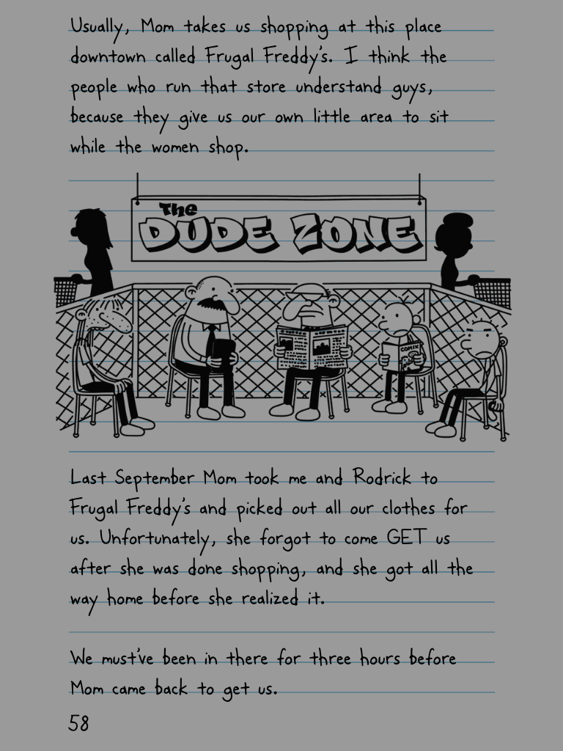 Usually, Mom takes us shopping at this place
downtown called Frugal Freddy's. I think the
people who run that store understand guys,
because they give us our own little area to sit
while the women shop.
The
DUDE ZONE
COMIX
Last September Mom took me and Rodrick to
Frugal Freddy's and picked out all our clothes for
us. Unfortunately, she forgot to come GET us
after she was done shopping, and she got all the
way home before she realized it.
We must've been in there for three hours before
Mom came back to get us.
58